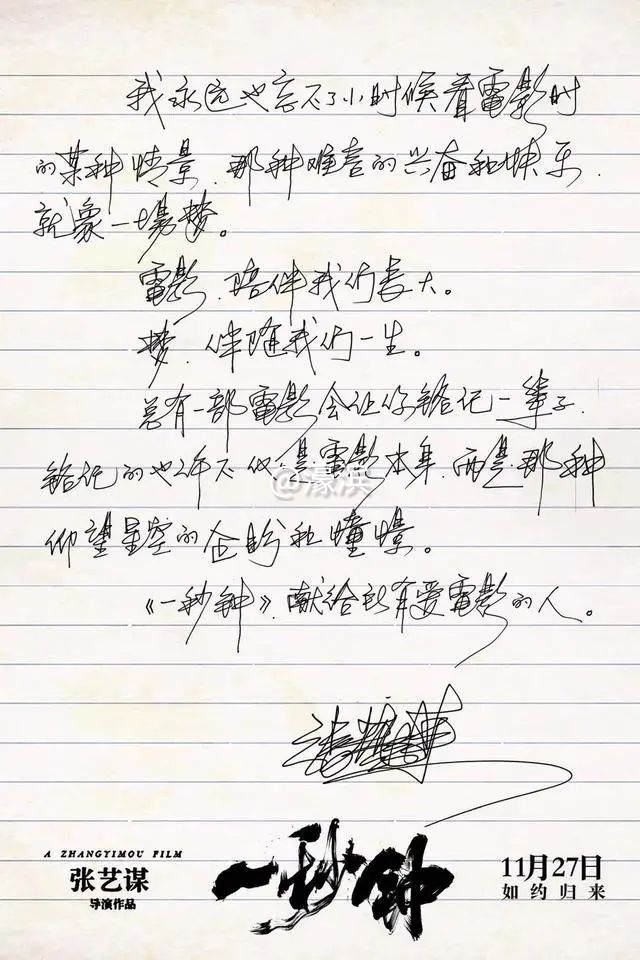 我永远也忘不了小时候看電影时
的某种情景,那种难言的兴奋和快乐,
就象一場梦。
電影,陪伴我们長大。
梦,伴随我们一生。
总有一部電影会让你銘记一辈子,
銘记的也许不仅是電影本身,而是那种
仰望星空的企盼和憧憬。
《一秒钟》,献给所有爱電影的人。
@濠滨
A ZHANGYIMOU FILM
张艺谋
导演作品
一秒钟
11月27日
如约归来